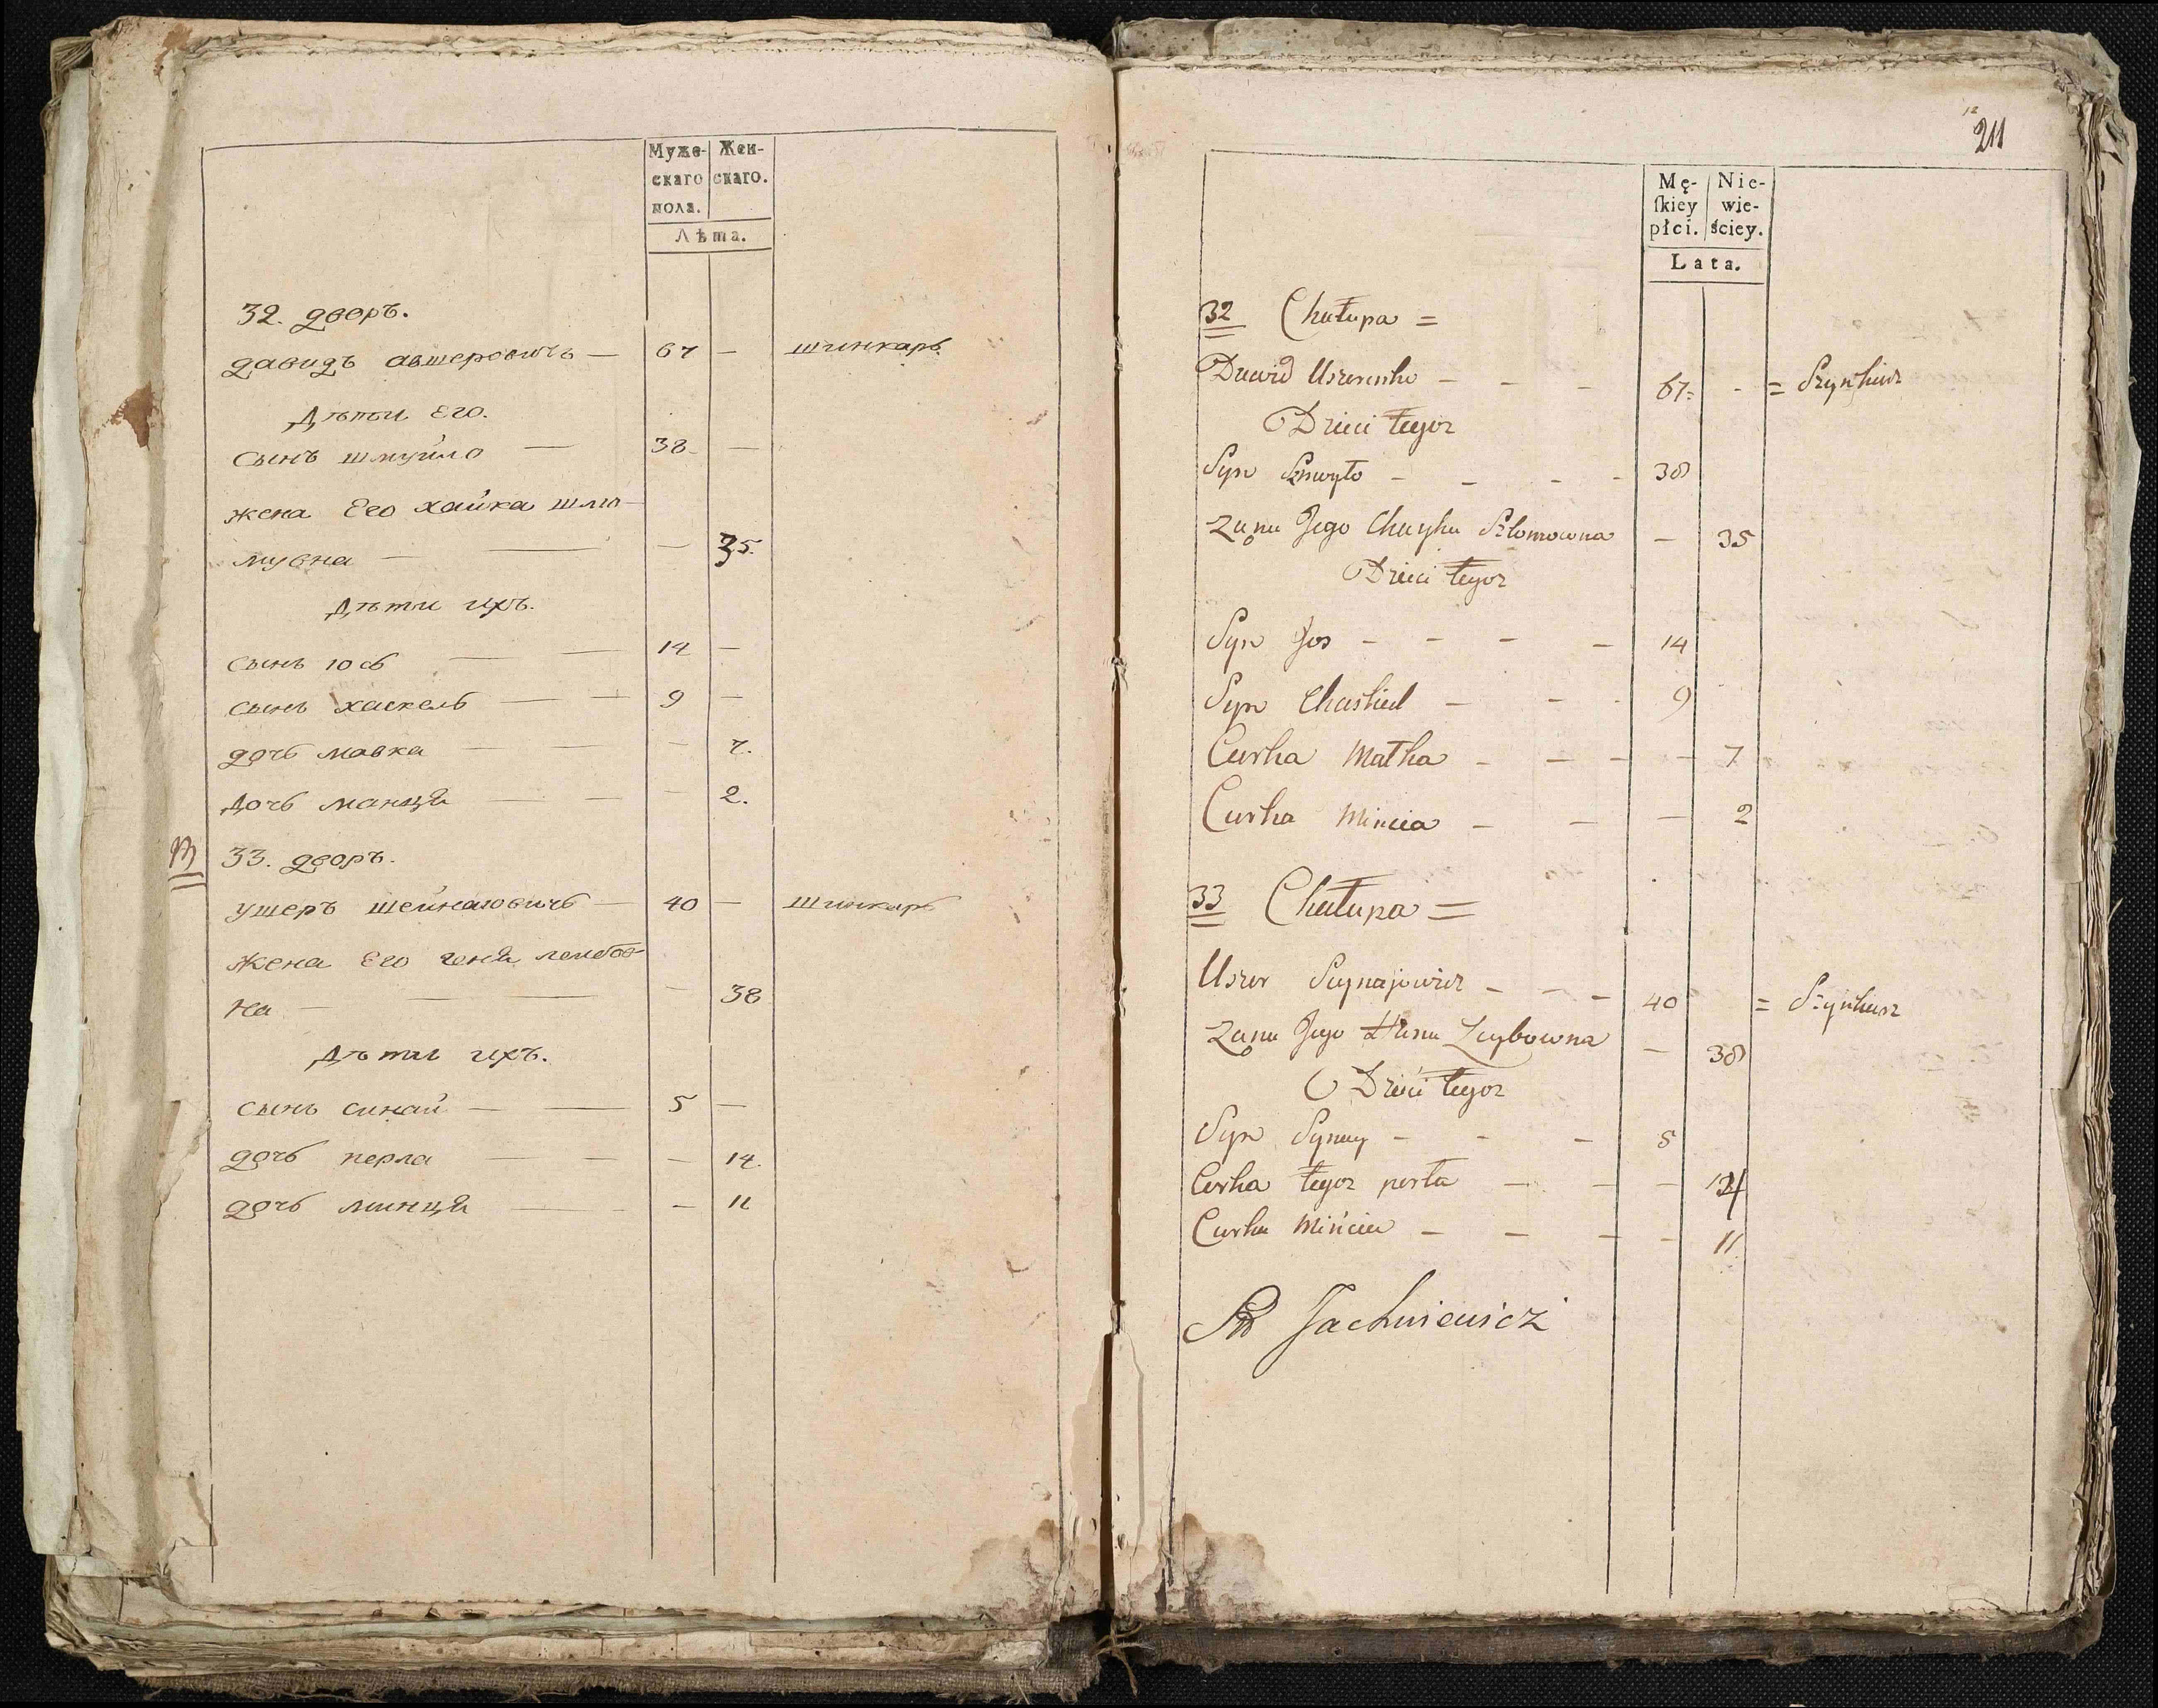 Муже-
скаго
пола.
Жен-
скаго.
Лѣта.
32. дворъ.
давидъ авшеровичь — 67 — шинкарь
Дѣти Его.
сынъ шмуйло — 38 —
жена Его хайка шлю-
мувна — — — 35.
Дѣти ихъ.
сынъ юсь — — 14 —
сынъ хаскель — — 9 —
дочь мавка — — — 7.
Дочь манця — — — 2.
33. дворъ.
ушеръ шейнаговичь — 40 — шинкарь
жена Его геня лембов-
на — — — — 38
Дѣти ихъ.
сынъ синай — — 5 —
дочь перла — — — 14.
дочь минця — — — 11
12
211
Mę-
ſkiey
płci.
Nie-
wie-
ściey.
Lata.
32 Chałupa =
Dawid Uszerenko — — — 67= - = Szynkarz
Dzieci tegoż
Syn Szmuyło — — — - 38
Żona Jego Chayka Szlomowna — 35
Dzieci tegoż
Syn Jos — — — — 14
Syn Chaskiel — — - 9
Curka Małka — — — — 7
Curka Mincia — — — 2
33 Chałupa =
Uszer Szynajowicz — — — 40 = Szynkarz
Żona Jego Henia Leybowna — 38
Dzieci tegoż
Syn Synay — - — 5
Corka tegoż perła — — — 14
Curka Mińcia — — — — 11
Jachniewicz